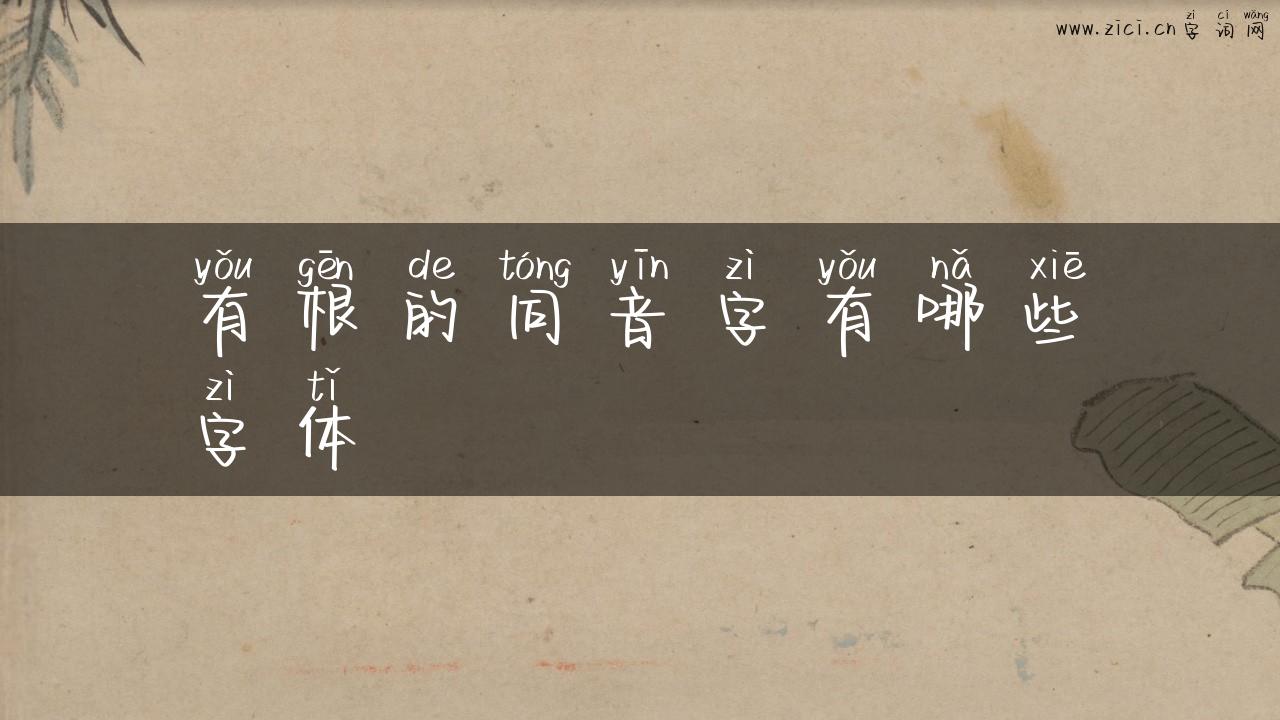 zì cí wǎng
www.zici.cn 字词网
yǒu gēn de tóng yīn zì yǒu nǎ xiē
有根的同音字有哪些
zì tǐ
字体